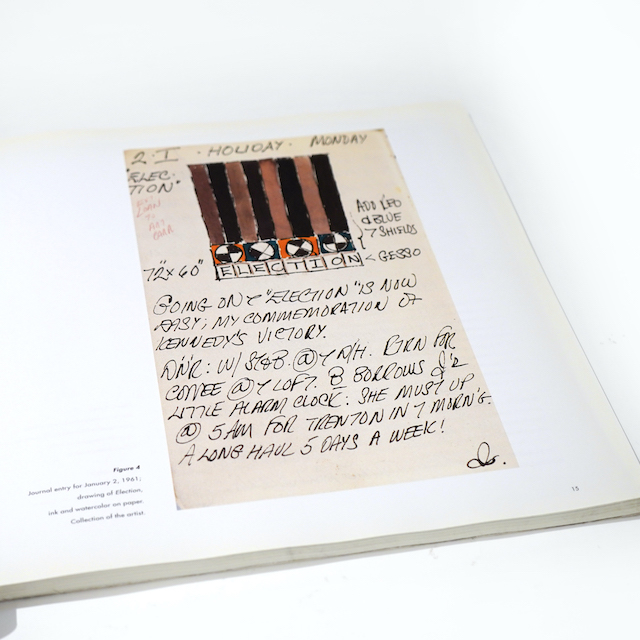 2·I · HOLIDAY · MONDAY
"ELEC-
TION"
ADD RED
& BLUE
7 SHIELDS
72" x 60"
ELECTION
< GESSO
GOING ON Y "ELECTION" IS NOW
EASY; MY COMMEMORATION OF
KENNEDY'S VICTORY.
DN'R: W/ ST&B @ Y N/H. RTRN FOR
COFFEE @ Y LOFT. B BORROWS
LITTLE ALARM CLOCK: SHE MUST UP
@ 5 AM FOR TRENTON IN Y MORN'G.
A LONG HAUL 5 DAYS A WEEK!
Figure 4
Journal entry for January 2, 1961;
drawing of Election,
ink and watercolor on paper.
Collection of the artist.
15